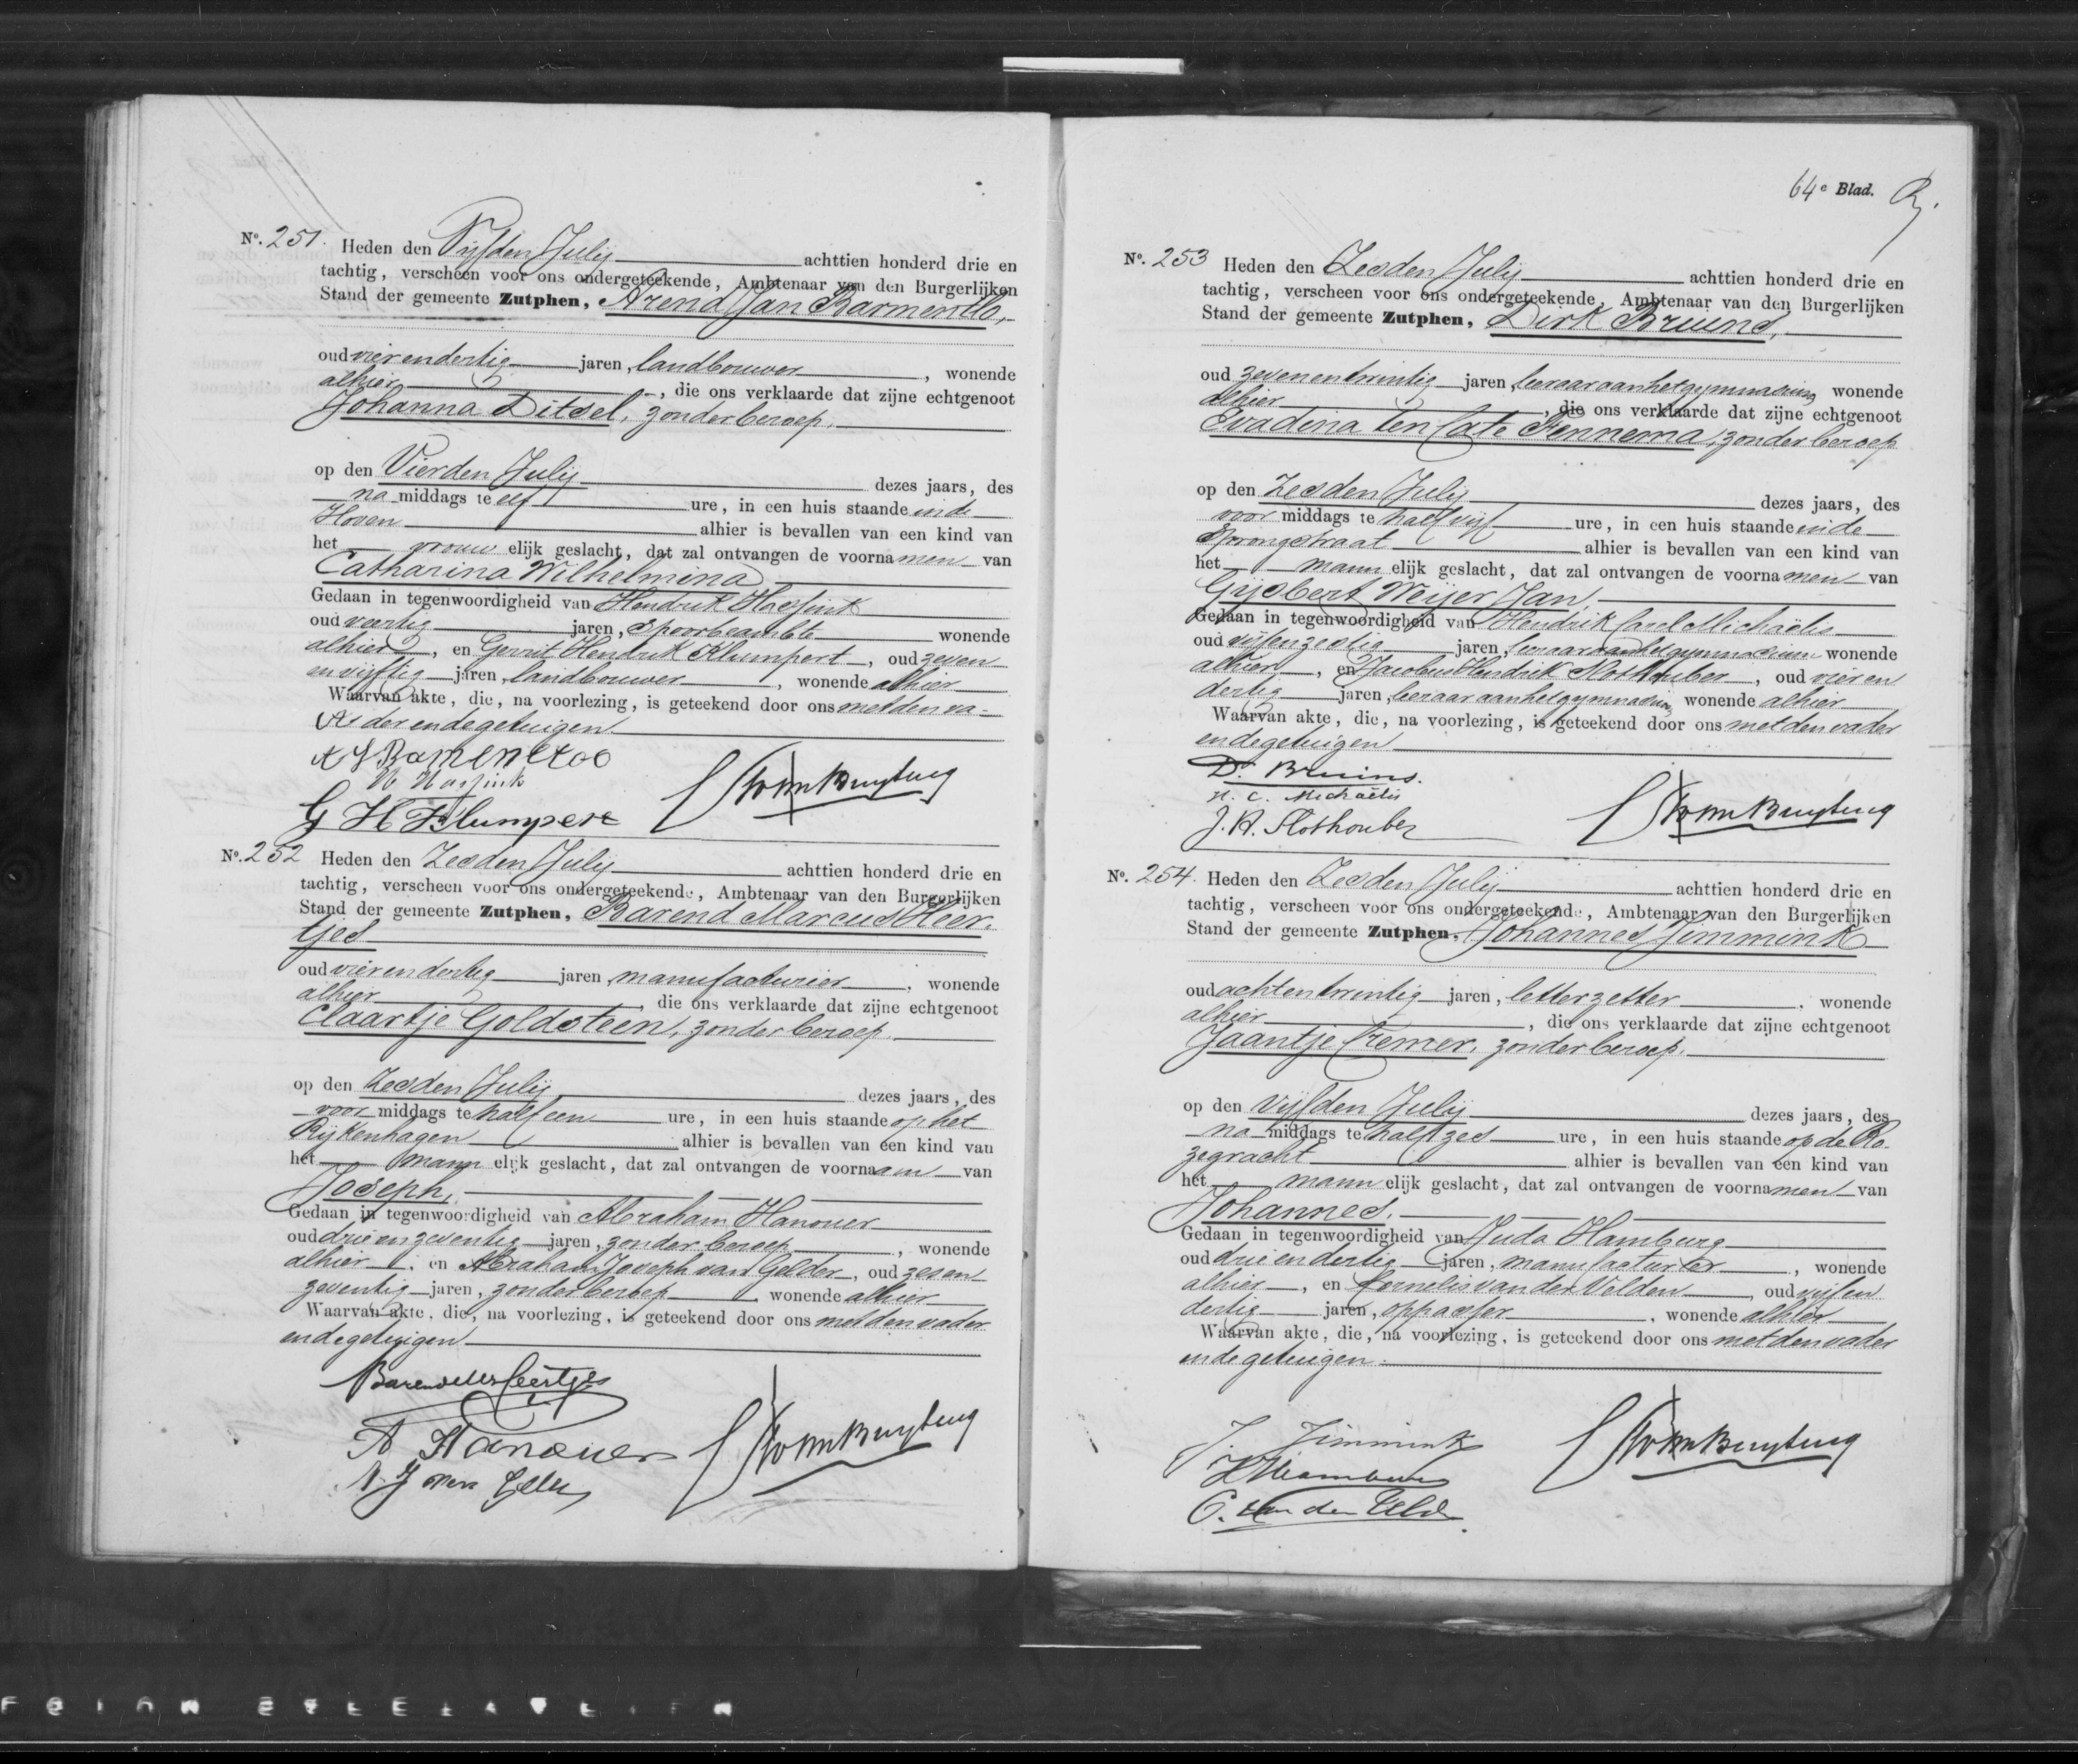 No. 251. Heden den Vijfden Julij achttien honderd drie en
tachtig, verscheen voor ons ondergeteekende, Ambtenaar van den Burgerlijken
Stand der gemeente Zutphen, Arend Jan Barmentlo,
oud vier en dertig jaren, landbouwer, wonende
alhier, die ons verklaarde dat zijne echtgenoot
Johanna Ditsel, zonder beroep,
op den Vierden Julij dezes jaars, des
na middags te elf ure, in een huis staande in de
Hoven alhier is bevallen van een kind van
het vrouwelijk geslacht, dat zal ontvangen de voornamen van
Catharina Wilhelmina
Gedaan in tegenwoordigheid van Hendrik
oud veertig jaren, spoorbeambte wonende
alhier, en Gerrit Hendrik Klumpert, oud zeven
en vijftig jaren, landbouwer, wonende alhier
Waarvan akte, die, na voorlezing, is geteekend door ons met den va-
der en de getuigen.
A J Barmentloo
G H Klumpert
No. 252 Heden den Zesden Julij achttien honderd drie en
tachtig, verscheen voor ons ondergeteekende, Ambtenaar van den Burgerlijken
Stand der gemeente Zutphen, Barend Marcus Heer-
tjes
oud vier en dertig jaren, manufacturier, wonende
alhier, die ons verklaarde dat zijne echtgenoot
Claartje Goldsteen, zonder beroep,
op den Zesden Julij dezes jaars, des
voor middags te half een ure, in een huis staande op het
Rijkenhagen alhier is bevallen van een kind van
het mannelijk geslacht, dat zal ontvangen de voornaam van
Joseph,
Gedaan in tegenwoordigheid van Abraham Hanouer
oud drie en zeventig jaren, zonder beroep, wonende
alhier, en Abraham Joseph van Gelder, oud zes en
zeventig jaren, zonder beroep, wonende alhier
Waarvan akte, die, na voorlezing, is geteekend door ons met den vader
en de getuigen
Barend Ms Heertjes
A Hanouer
A. J van Gelder
64e Blad.
No. 253 Heden den Zesden Julij achttien honderd drie en
tachtig, verscheen voor ons ondergeteekende, Ambtenaar van den Burgerlijken
Stand der gemeente Zutphen, Dirk Bruins,
oud zeven en twintig jaren, leeraar aan het gymnasium wonende
alhier, die ons verklaarde dat zijne echtgenoot
Evadina ten Cate Fennema, zonder beroep
op den Zesden Julij dezes jaars, des
voor middags te half vijf ure, in een huis staande in de
Sprongstraat alhier is bevallen van een kind van
het mannelijk geslacht, dat zal ontvangen de voornamen van
Gijsbert Weijer Jan,
Gedaan in tegenwoordigheid van Hendrik Carel Michaëlis
oud vijf en zestig jaren, leeraar aan het gymnasium wonende
alhier, en Jacobus Hendrik Slothouber, oud vier en
dertig jaren, leeraar aan het gymnasium wonende alhier
Waarvan akte, die, na voorlezing, is geteekend door ons met den vader
en de getuigen
D. Bruins.
H. C. Michaëlis
J. H. Slothouber
No. 254. Heden den Zesden Julij achttien honderd drie en
tachtig, verscheen voor ons ondergeteekende, Ambtenaar van den Burgerlijken
Stand der gemeente Zutphen, Johannes Jimmink
oud acht en twintig jaren, letterzetter, wonende
alhier, die ons verklaarde dat zijne echtgenoot
Jaantje Cremer, zonder beroep,
op den Vijfden Julij dezes jaars, des
na middags te half zes ure, in een huis staande op de Ro-
zegracht alhier is bevallen van een kind van
het mannelijk geslacht, dat zal ontvangen de voornamen van
Johannes.
Gedaan in tegenwoordigheid van Juda Hamburg
oud drie en dertig jaren, manufacturier, wonende
alhier, en Cornelis van der Velden, oud vijf en
dertig jaren, oppasser, wonende alhier
Waarvan akte, die, na voorlezing, is geteekend door ons met den vader
en de getuigen.
J Jimmink
J Hamburg
C. van der Velde